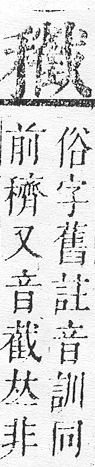 俗字舊註音訓同
前穧又音截𠀤非